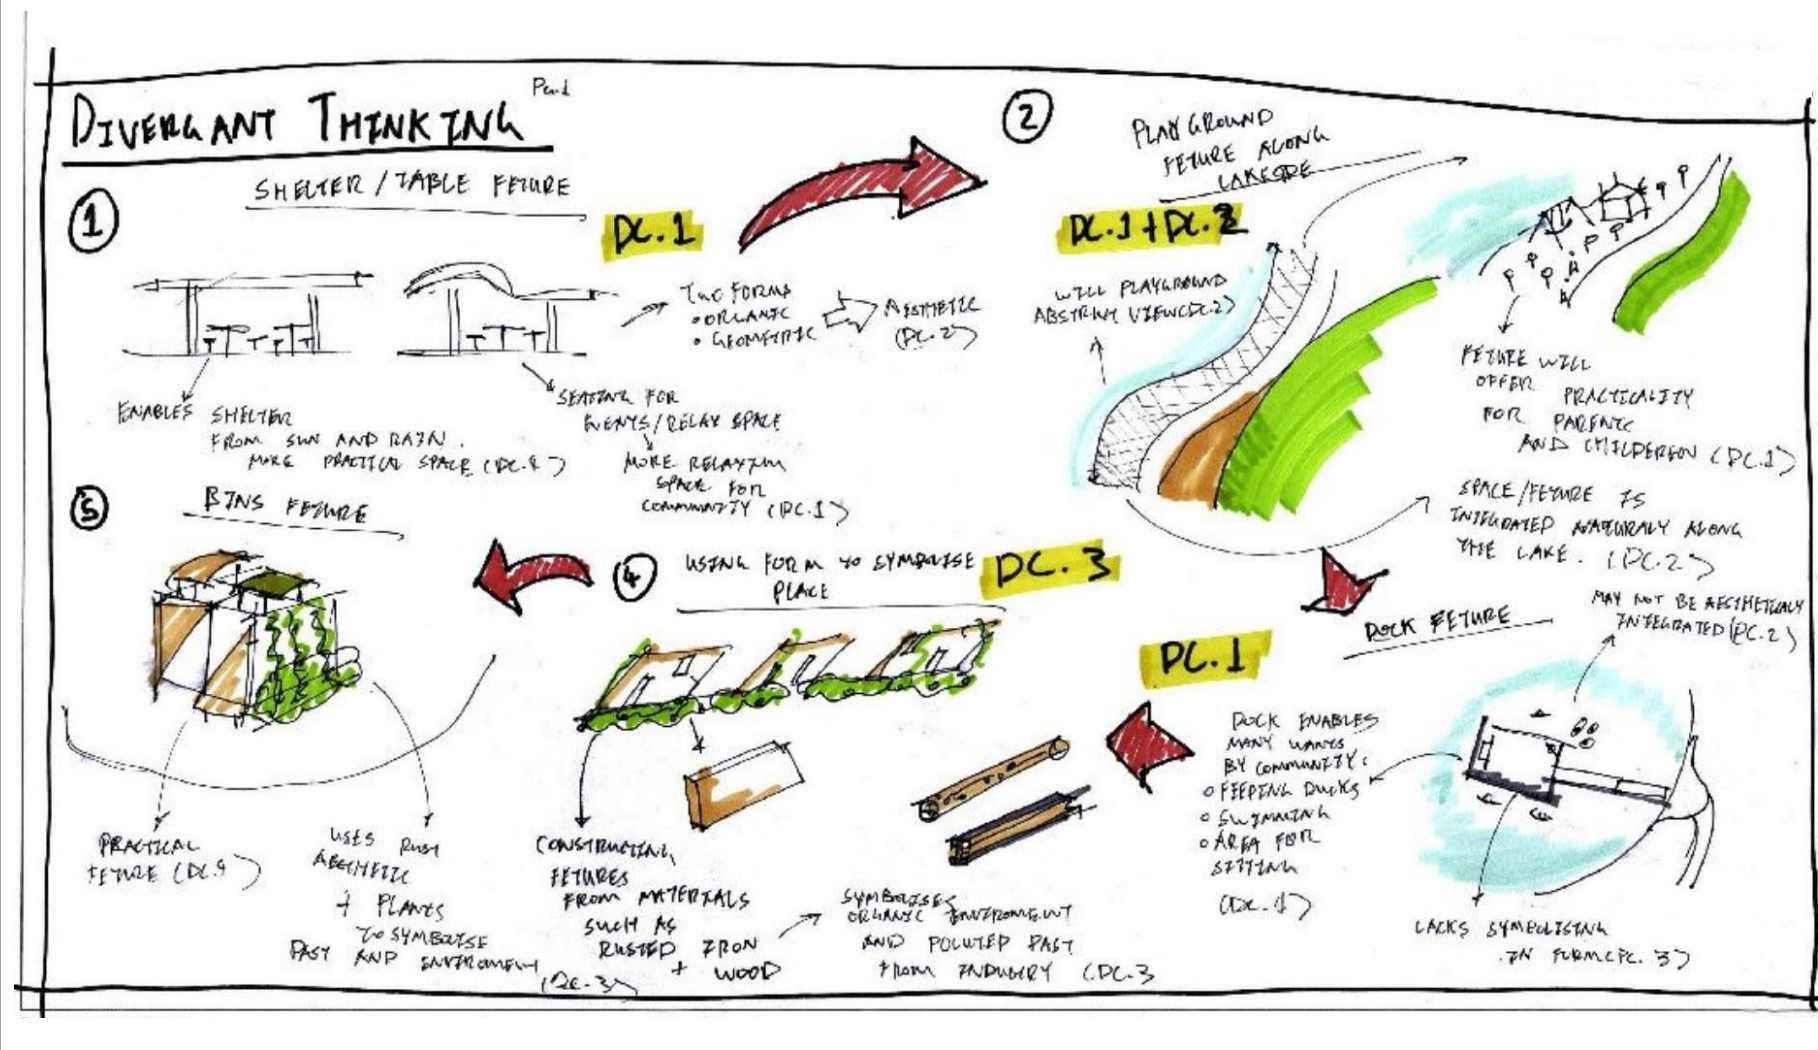 DIVERGANT THINKING
①
SHELTER / TABLE FETURE
DC.1
TWO FORMS
• ORGANIC
• GEOMETRIC
AESTHETIC
(DC.2)
ENABLES SHELTER
FROM SUN AND RAIN.
MORE PRACTICAL SPACE (DC.1)
SEATING FOR
EVENTS/RELAX SPACE
MORE RELAXING
SPACE FOR
COMMUNITY (DC.1)
②
PLAYGROUND
FETURE ALONG
LAKESIDE
DC.1 + DC.2
WILL PLAYGROUND
ABSTRUCT VIEW (DC.2)
FETURE WILL
OFFER PRACTICALITY
FOR PARENTS
AND CHILDEREN (DC.1)
SPACE/FETURE IS
INTEGRATED NATURALY ALONG
THE LAKE. (DC.2)
DOCK FETURE
MAY NOT BE AESTHETICALY
INTEGRATED (DC.2)
DC.1
DOCK ENABLES
MANY WANTS
BY COMMUNITY:
○ FEEDING DUCKS
○ SWIMMING
○ AREA FOR
SITTING
(DC.1)
LACKS SYMBOLISING
IN FORM (DC.3)
④
USING FORM TO SYMBOLISE
PLACE
DC.3
CONSTRUCTING
FETURES
FROM MATERIALS
SUCH AS
RUSTED IRON
+ WOOD
SYMBOLISES
ORGANIC ENVIROMENT
AND POLUTED PAST
FROM INDUSTRY (DC.3
⑤
BINS FETURE
PRACTICAL
FETURE
USES RUST
AESTHETIC
+ PLANTS
TO SYMBOLISE
PAST AND ENVIROMENT
(DC.3)